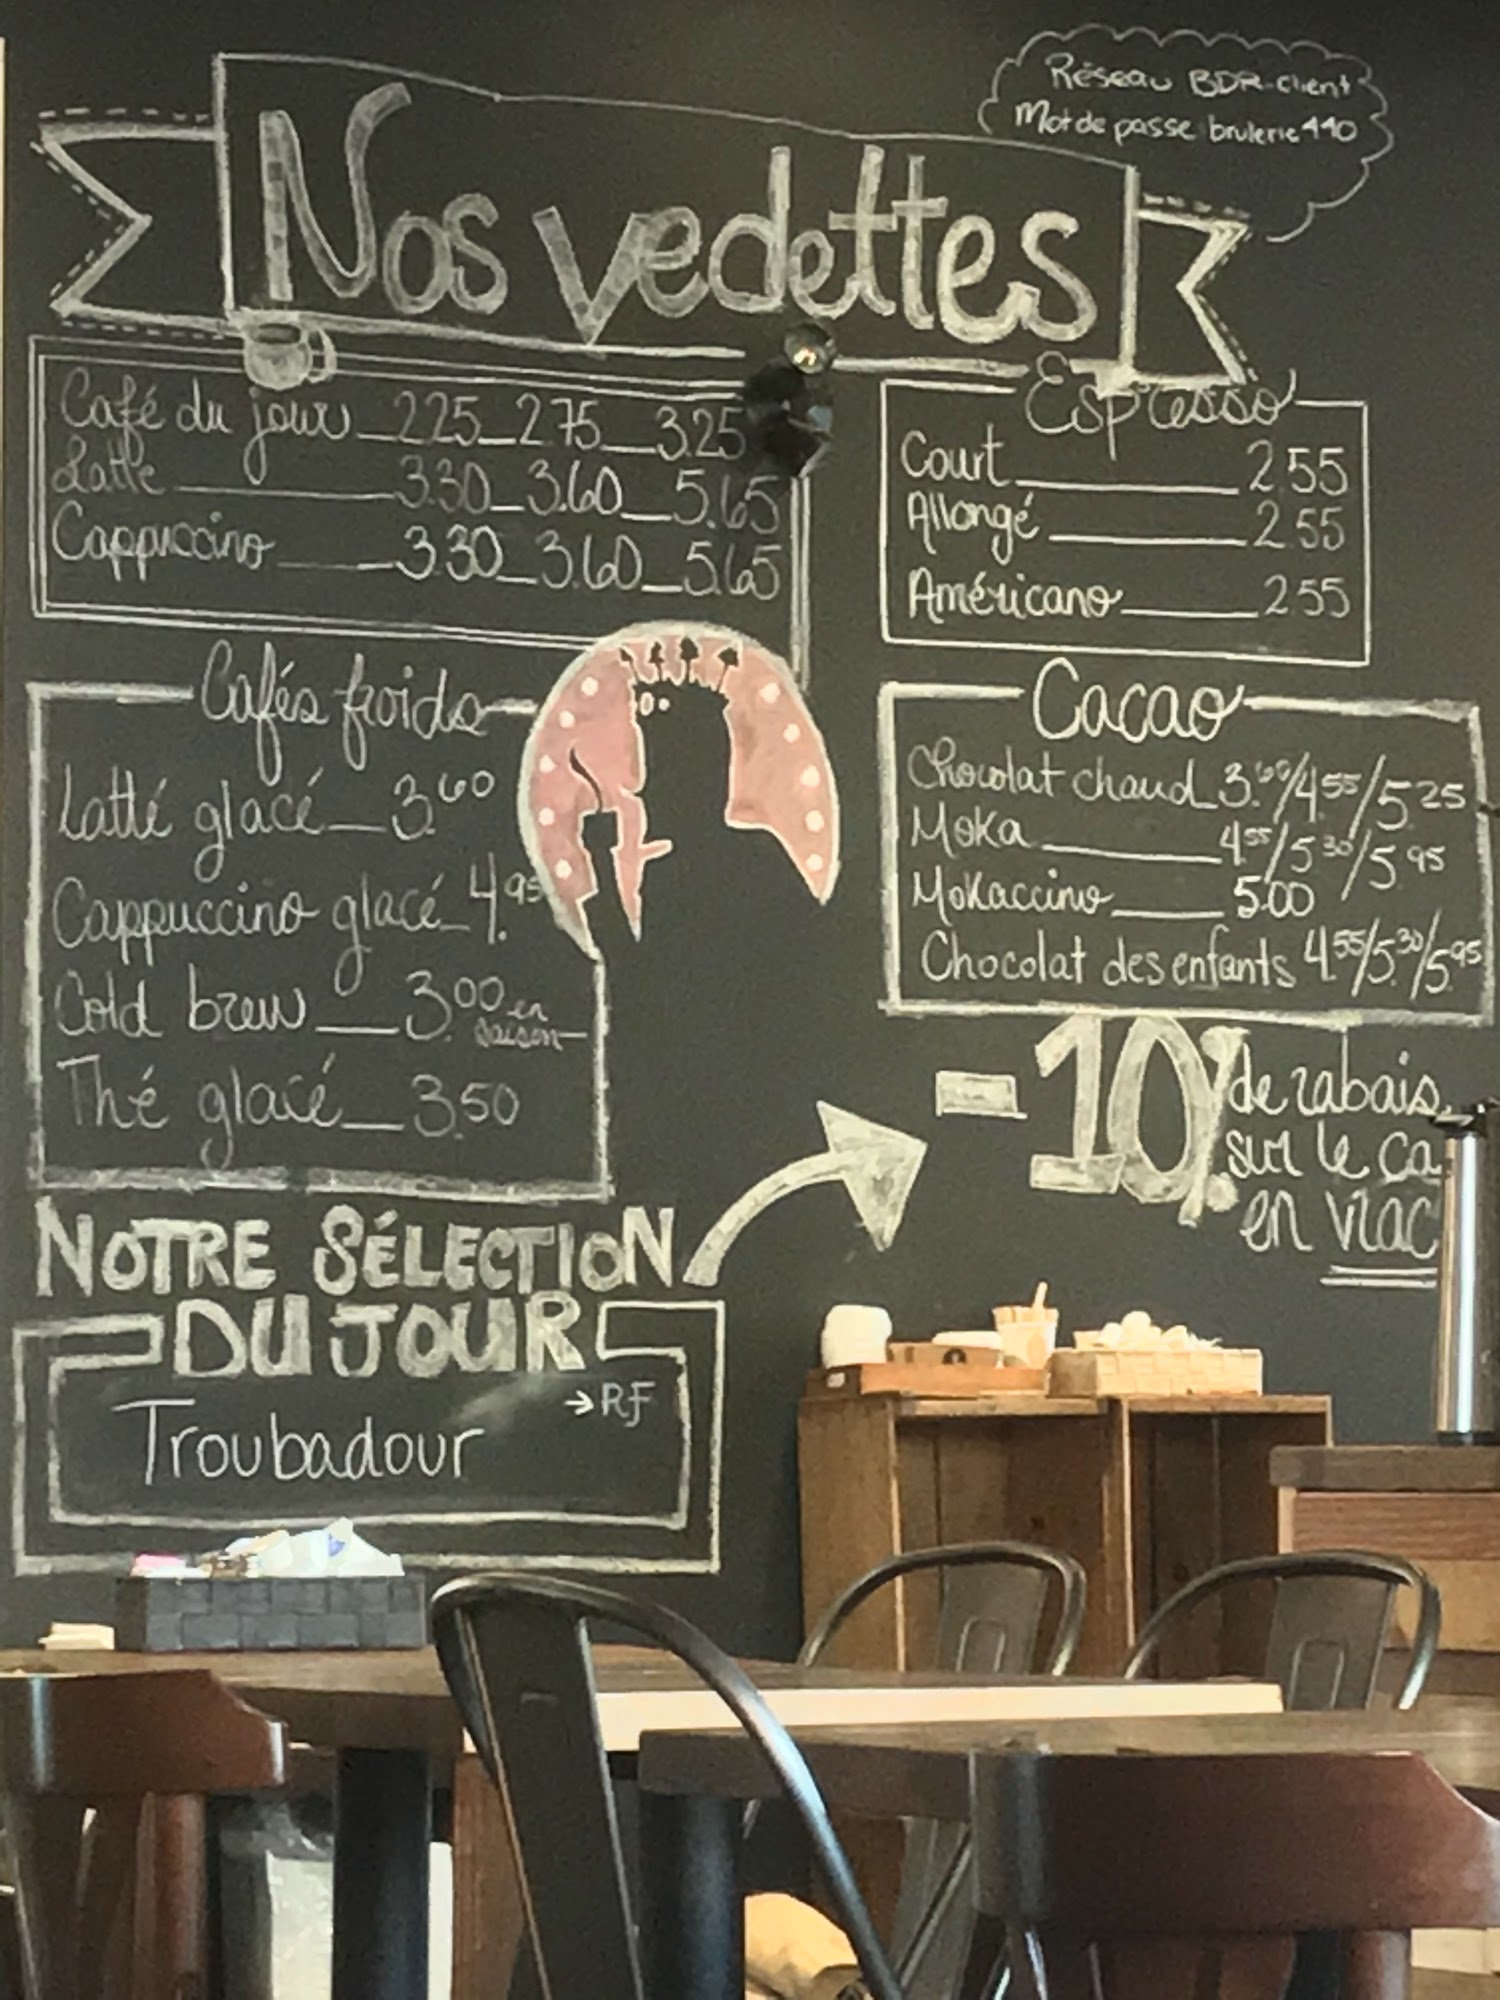 Réseau BDR-client
Mot de passe brulerie440
Nos vedettes
Café du jour 2.25 2.75 3.25
Latté 3.30 3.60 5.65
Cappuccino 3.30 3.60 5.65
Espresso
Court 2.55
Allongé 2.55
Américano 2.55
Cafés froids
Latté glacé 3.60
Cappuccino glacé 4.95
Cold brew 3.00 en saison
Thé glacé 3.50
Cacao
Chocolat chaud 3.60/4.55/5.25
Moka 4.55/5.30/5.95
Mokaccino 5.00
Chocolat des enfants 4.55/5.30/5.95
-10% de rabais
sur le ca
en vrac
NOTRE SÉLECTION
DU JOUR
→ RF
Troubadour